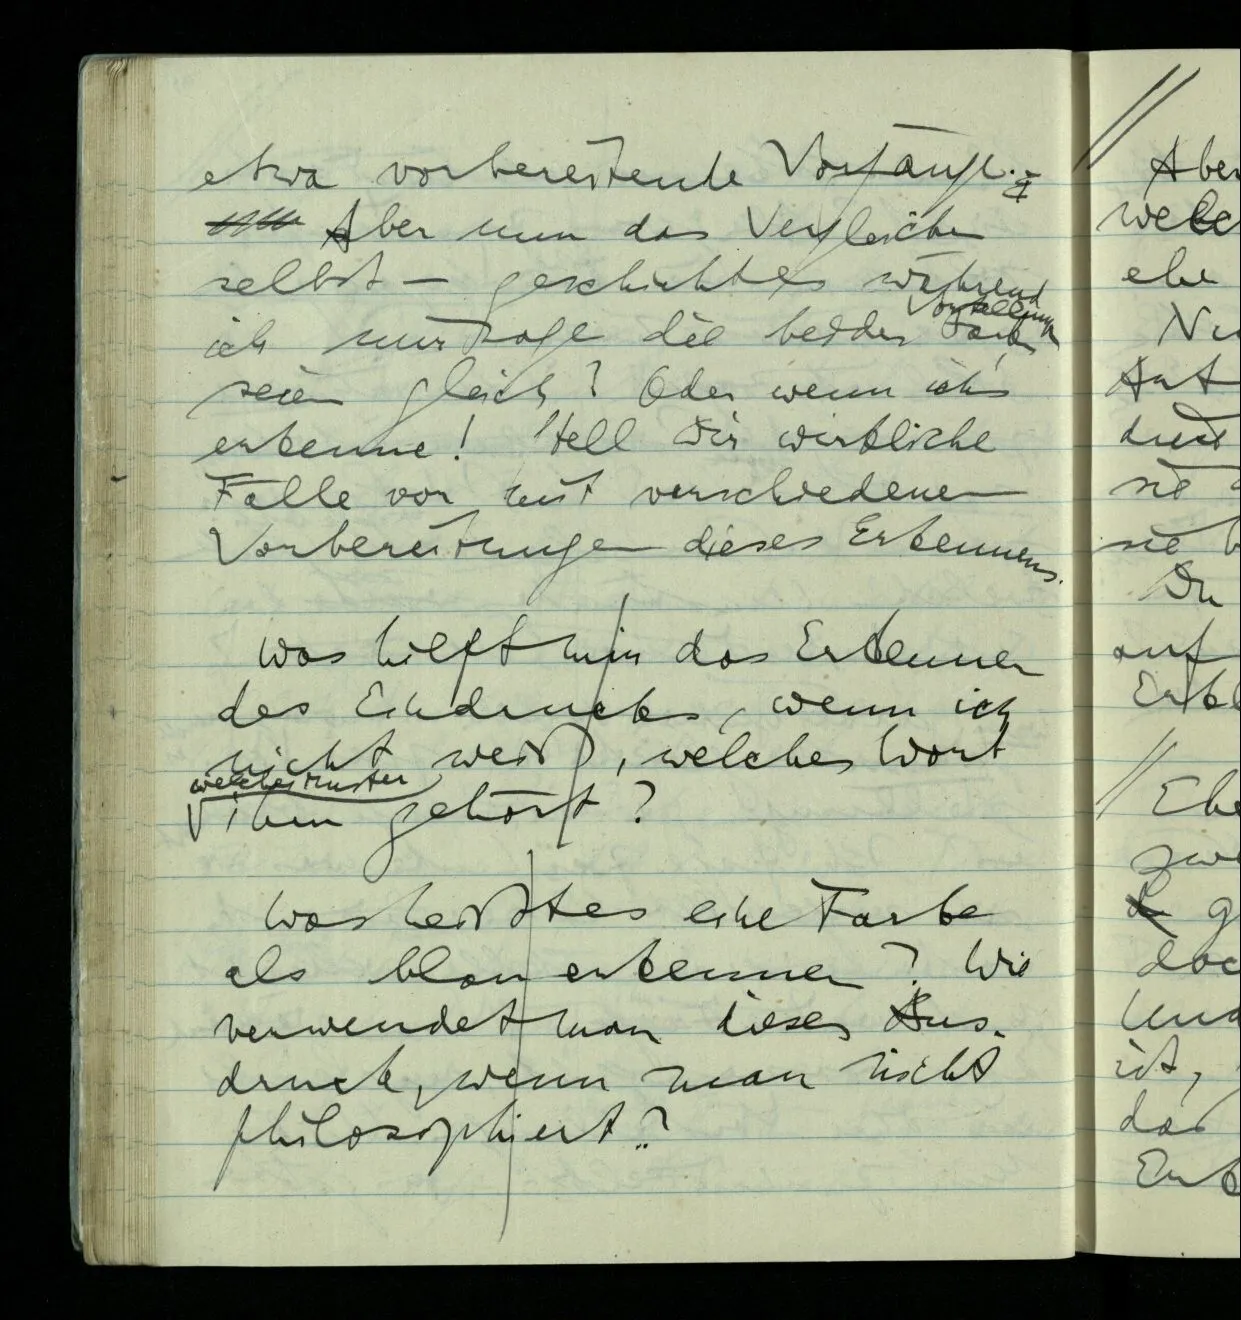 etwa vorbereitende Vorgänge.
Aber nun das Vergleichen
selbst – geschieht es während
Vorstellungen
ich mir sage die beiden Farben
seien gleich? Oder wenn ich's
erkenne! Stell Dir wirkliche
Fälle vor mit verschiedenen
Vorbereitungen dieses Erkennens.
Was hilft mir das Erkennen
des Eindrucks, wenn ich
nicht weiß, welches Wort
welches Muster
ihm gehört?
Was heißt es eine Farbe
als blau erkennen? Wie
verwendet man diesen Aus-
druck, wenn man nicht
philosophiert?
//
Aber
welc
ehe
Ant
sie
sie b
Du
auf
//
Ehe
zwe
g
doc
Und
ist,
das